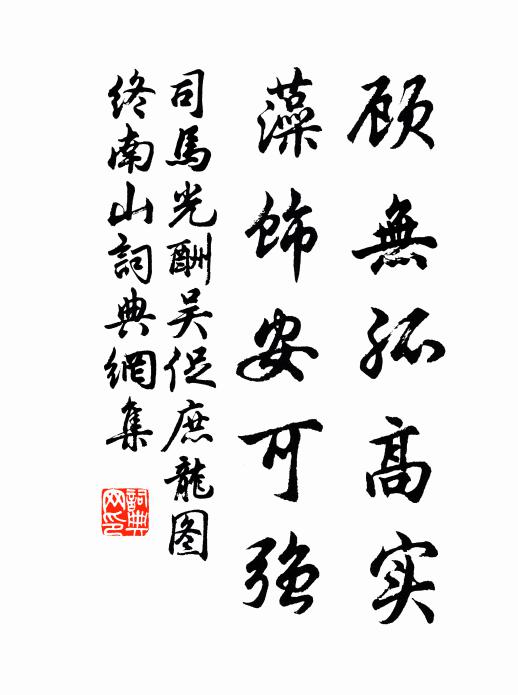 顾無孤高实
藻飾安可強
司馬光酬吴促庶龍图
終南山詞典網集
詞典網印